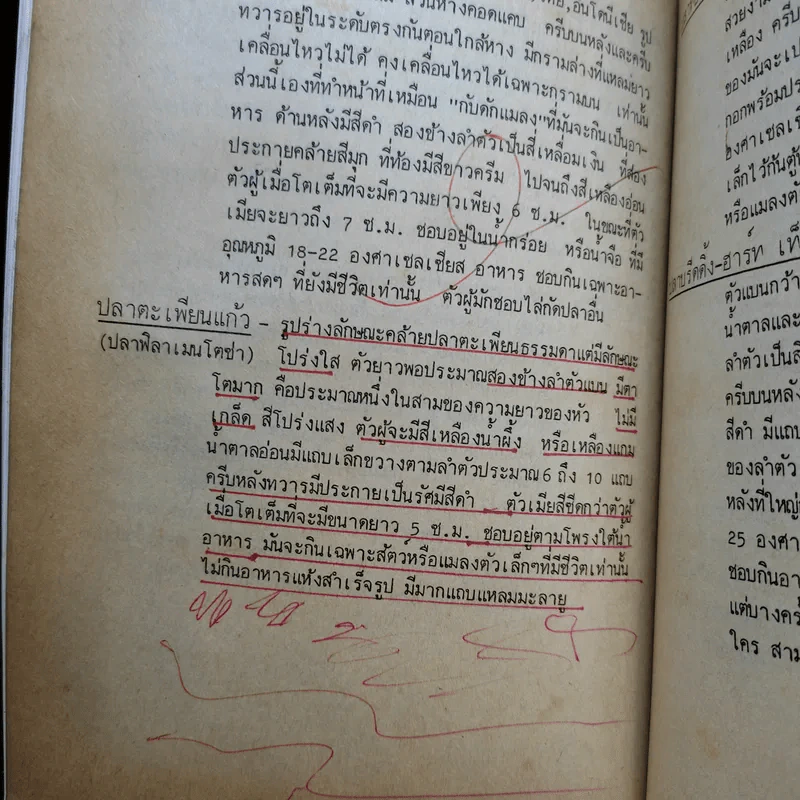 อินโดนีเซีย รูป
ส่วนหางคอดแคบ ครีบบนหลังและครีบ
ทวารอยู่ในระดับตรงกันตอนใกล้หาง มีกรามล่างที่แหลมยาว
เคลื่อนไหวไม่ได้ คงเคลื่อนไหวได้เฉพาะกรามบน เท่านั้น
ส่วนนี้เองที่ทำหน้าที่เหมือน "กับดักแมลง"ที่มันจะกินเป็นอา-
หาร ด้านหลังมีสีดำ สองข้างลำตัวเป็นสีเหลื่อมเงิน ที่ส่อง
ประกายคล้ายสีมุก ที่ท้องมีสีขาวครีม ไปจนถึงสีเหลืองอ่อน
ตัวผู้เมื่อโตเต็มที่จะมีความยาวเพียง 6 ซ.ม. ในขณะที่ตัว
เมียจะยาวถึง 7 ซ.ม. ชอบอยู่ในน้ำกร่อย หรือน้ำจืด ที่มี
อุณหภูมิ 18-22 องศาเซลเซียส อาหาร ชอบกินเฉพาะอา-
หารสดๆ ที่ยังมีชีวิตเท่านั้น ตัวผู้มักชอบไล่กัดปลาอื่น
ปลาตะเพียนแก้ว - รูปร่างลักษณะคล้ายปลาตะเพียนธรรมดาแต่มีลักษณะ
(ปลาฟิลาเมนโตซ่า) โปร่งใส ตัวยาวพอประมาณสองข้างลำตัวแบน มีตา
โตมาก คือประมาณหนึ่งในสามของความยาวของหัว ไม่มี
เกล็ด สีโปร่งแสง ตัวผู้จะมีสีเหลืองน้ำผึ้ง หรือเหลืองแถม
น้ำตาลอ่อนมีแถบเล็กขวางตามลำตัวประมาณ6 ถึง 10 แถบ
ครีบหลังทวารมีประกายเป็นรัศมีสีดำ ตัวเมียสีซีดกว่าตัวผู้
เมื่อโตเต็มที่จะมีขนาดยาว 5 ซ.ม. ชอบอยู่ตามโพรงใต้น้ำ
อาหาร มันจะกินเฉพาะสัตว์หรือแมลงตัวเล็กๆที่มีชีวิตเท่านั้น
ไม่กินอาหารแห้งสำเร็จรูป มีมากแถบแหลมมะลายู
สวยงาม
เหลือง ครีบ
ของมันจะเป
กอกพร้อมประ
องศาเซลเซี
เล็กไว้กันตู้
หรือแมลงตัว
ปลาบรีดดิ้ง-ฮาร์ท เท
ตัวแบนกว้า
น้ำตาลและ
ลำตัวเป็นสี
ครีบบนหลัง
สีดำ มีแถบ
ของลำตัว
หลังที่ใหญ่
25 องศา
ชอบกินอา
แต่บางครั้
ใคร สาม